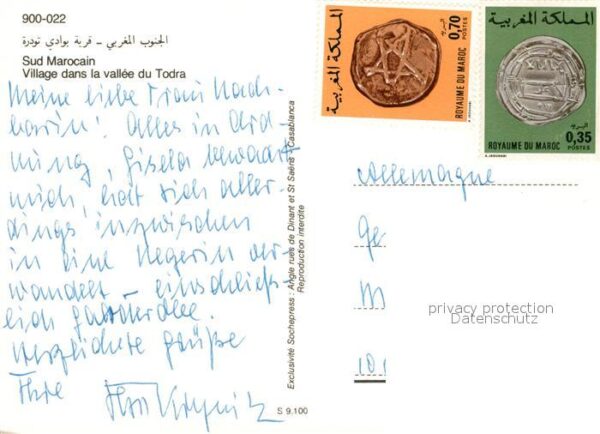 900-022
الجنوب المغربي - قرية بوادي تودرة
Sud Marocain
Village dans la vallée du Todra
Meine liebe Frau Nach-
barin! Alles in Ord-
nung, Gisela bewacht
mich, hat sich aller-
dings inzwischen
in eine Negerin ver-
wandelt - einschließ-
lich
Herzlichste Grüße
Ihre
Exclusivité Sochepress : Angle rues de Dinant et St Saëns - Casablanca
Reproduction interdite
S 9.100
المملكة المغربية
0,70
البريد
POSTES
ROYAUME DU MAROC
المملكة المغربية
ROYAUME DU MAROC
البريد
0,35
POSTES
Allemagne
privacy protection
Datenschutz